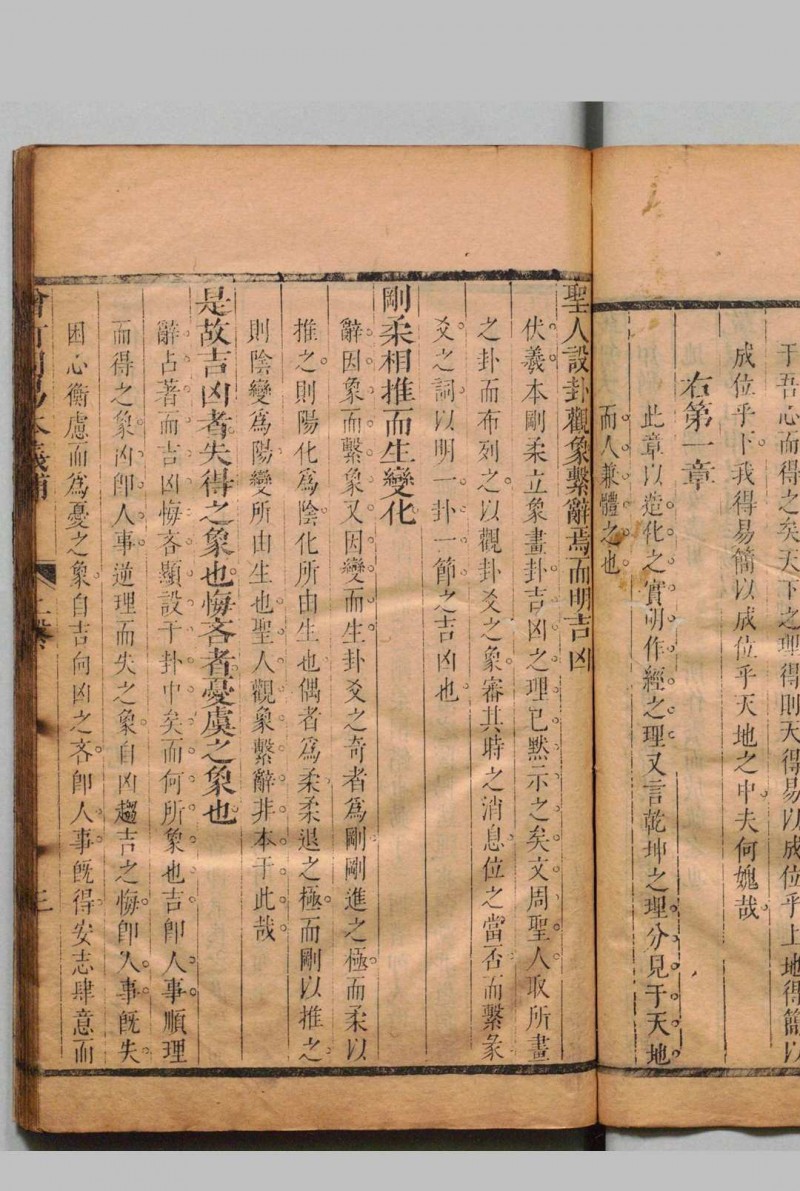 于吾心而得之矣天下之理得則天得易以成位乎上地得簡以
成位乎下我得易簡以成位乎天地之中夫何媿哉
右第一章
此章以造化之實明作經之理又言乾坤之理分見于天地
而人兼體之也
聖人設卦觀象繫辭焉而明吉凶
伏羲本剛柔立象畫卦吉凶之理已黙示之矣文周聖人取所畫
之卦而布列之以觀卦爻之象審其時之消息位之當否而繫彖
爻之詞以明一卦一節之吉凶也
剛柔相推而生變化
辭因象而繫象又因變而生卦爻之奇者為剛剛進之極而柔以
推之則陽化為陰化所由生也偶者為柔柔退之極而剛以推之
則陰變為陽變所由生也聖人觀象繫辭非本于此哉
是故吉凶者失得之象也悔吝者憂虞之象也
辭占著而吉凶悔吝顯設于卦中矣而何所象也吉卽人事順理
而得之象凶卽人事逆理而失之象自凶趨吉之悔卽人事旣失
困心衡慮而為憂之象自吉向凶之吝卽人事旣得安志肆意而
易本義 上繫 三